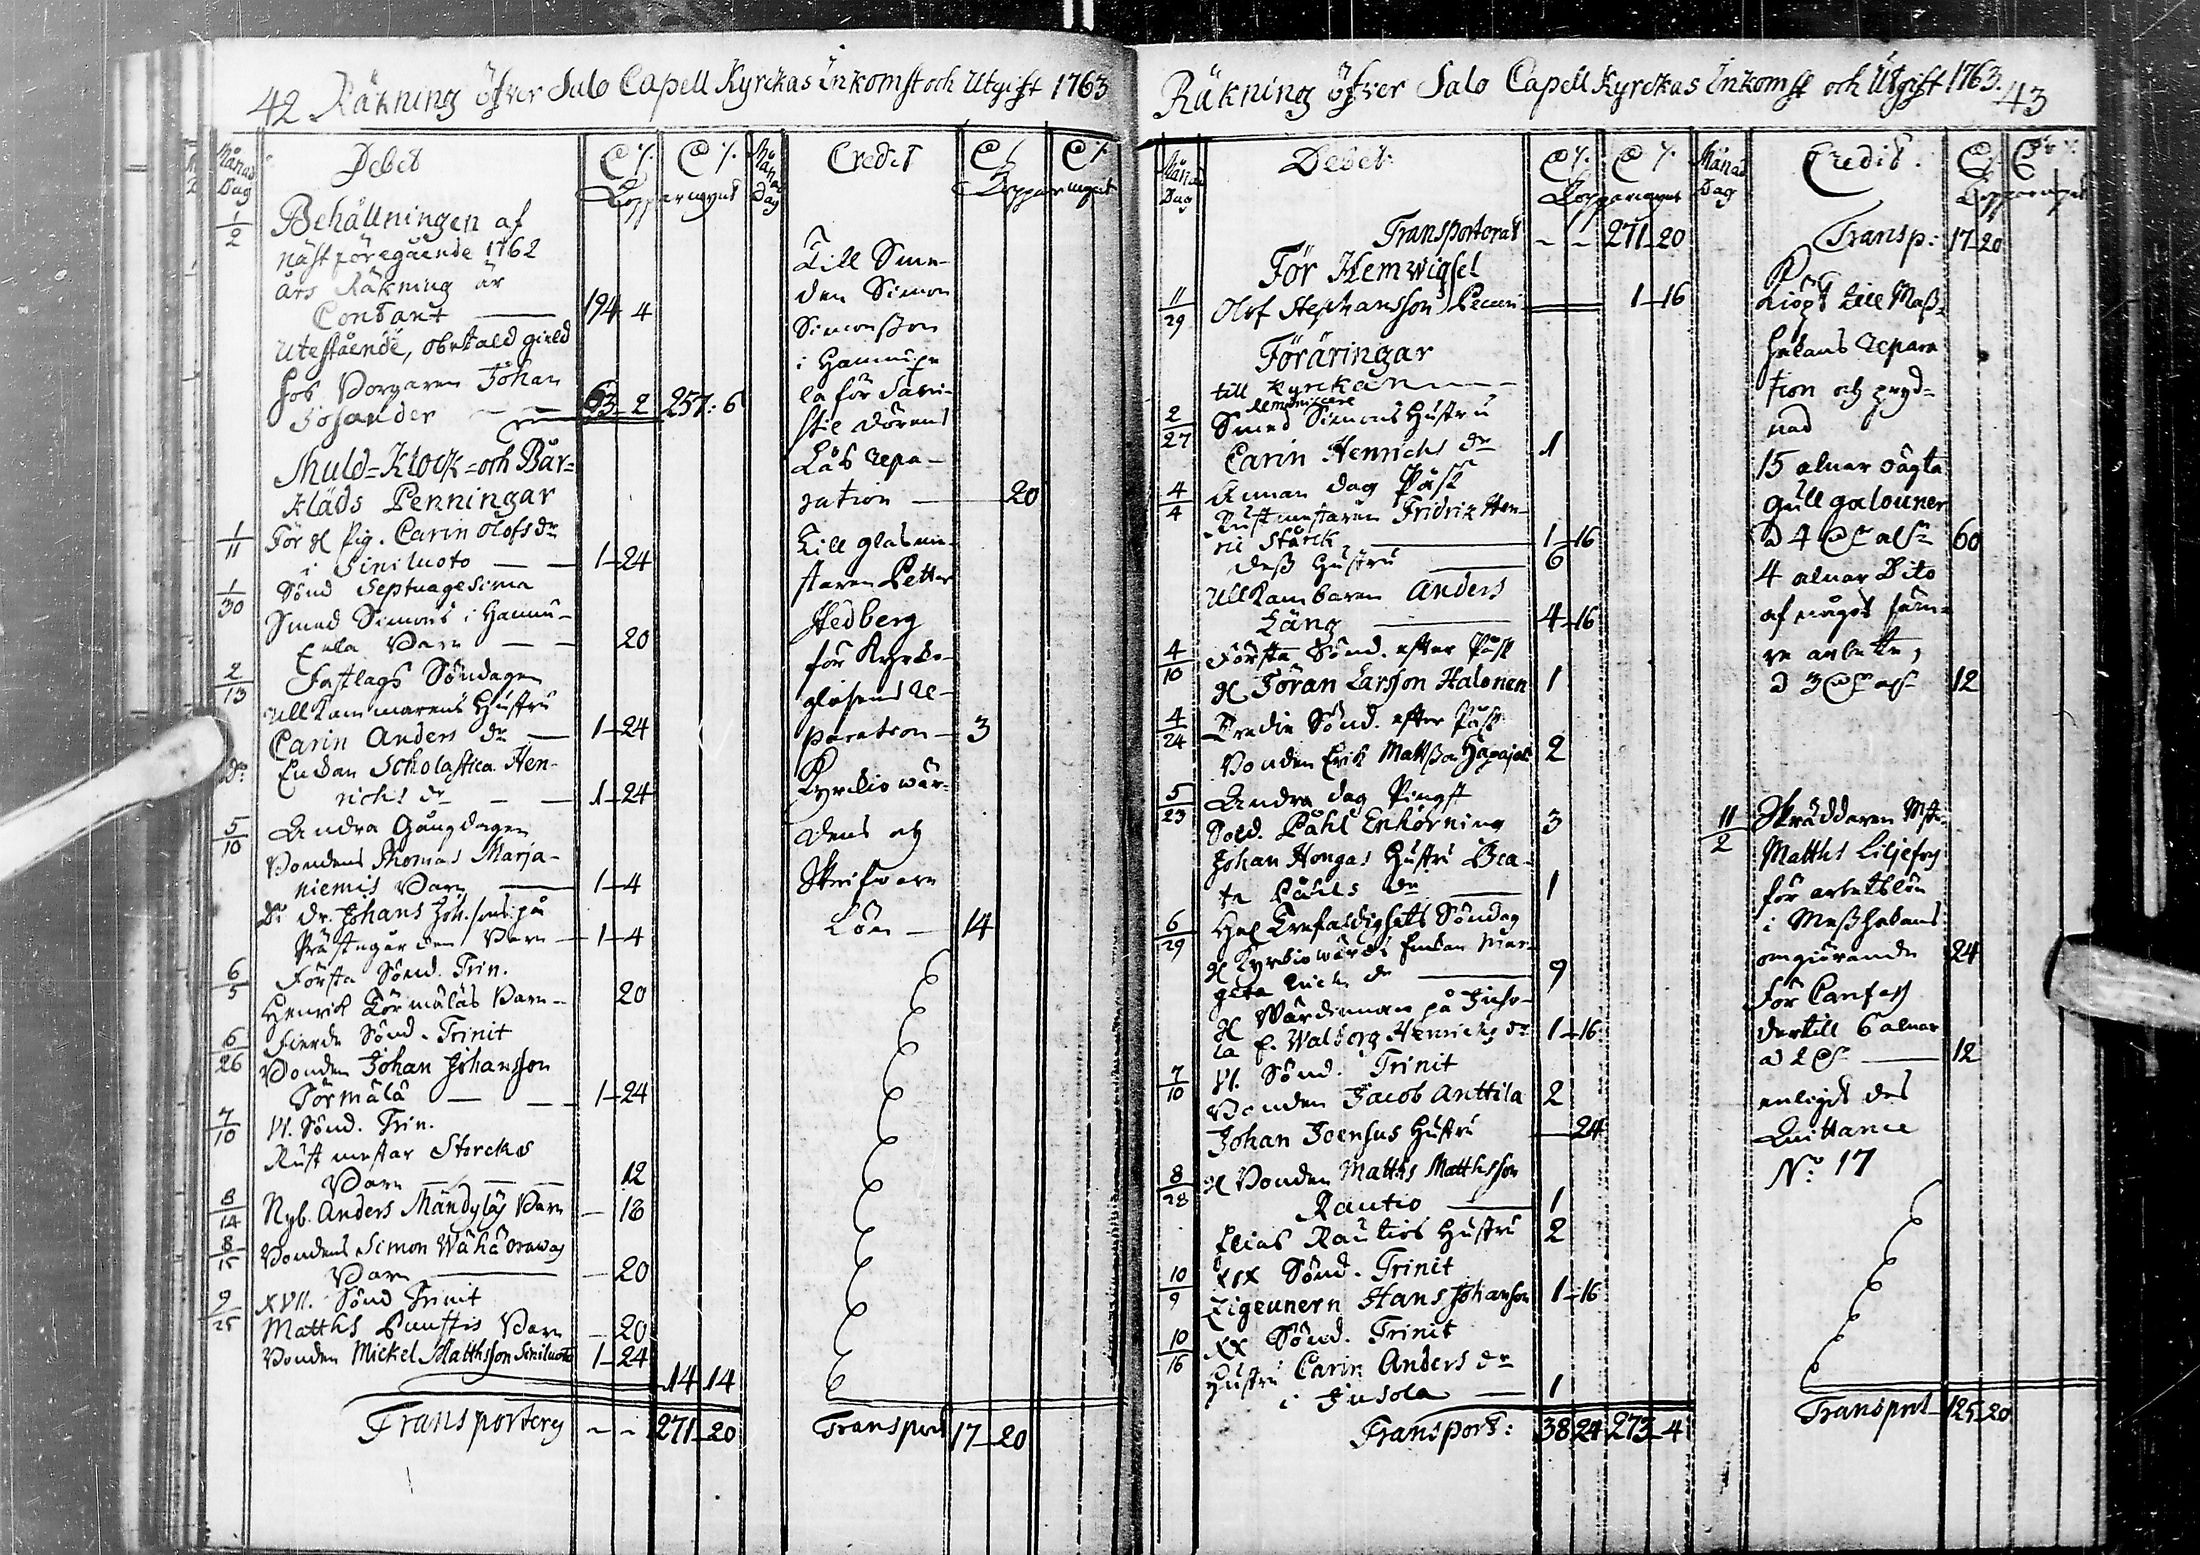 42 Räkning öfver Salo Capell Kyrckas Inkomst och Utgift 1763
Månad Dag
Debet
Koppar mynt
1/2 Behållningen af
näst föregående 1762
års Räkning är
Contant — 194 4
Utestående, obetald gield
hos Borgaren Johan
Josander — 63 2 257: 6
Mull=Klock=och Bår=
kläds Penningar
1/11 För Pig. Carin Olofs dr
i Siniluoto — 1-24
1/30 Sönd Septuagesima
Smed Simons i Hannu-
xela Barn — 20
2/13 Fastlags Söndagen
Ullkammarens Hustru
Carin Anders dr — 1-24
Do Enckan Scholastica Hen-
richs dr — 1-24
5/10 Andra Gångdagen
Bondens Thomas Marja-
niemis Barn — 1-4
Do dr. Johans Joh.sons på
Prästegården Barn — 1-4
6/5 Första Sönd. Trin.
Henrich Törmäläs Barn — 20
6/26 Fierde Sönd. Trinit
Bonden Johan Johansson
Törmälä — 1-24
7/10 VI. Sönd. Trin.
Rustmestar Storckes
Barn — 12
8/14 Nyb. Anders Mändyläs Barn — 18
8/15 Bondens Simon Wähä
Barn — 20
9/25 XVII. Sönd Trinit
Matths Barn — 20
Bonden Mickel Matthsson Siniluoto 1-24
14 14
Transporteras — 271-20
Månad Dag
Credit
Koppar mynt
Till Sme-
den Simon
Simonsson
i Hannuxe
la för Sacri-
stie dörens
Lås repa-
ration — 20
Till glasme-
staren Petter
Hedberg
för Kyrko-
glasens re-
paration — 3
Kyrckiowär-
dens och
Skrifware
Lön — 14
Transport 17-20
Räkning öfver Salo Capell Kyrckas Inkomst och Utgift 1763. 43
Månad Dag
Debet:
Koppar mynt
Transporterat — 271-20
För Hemwigsel
11/29 Olof Stephansson — 1-16
Föräringar
till Kyrckan —
Reminiscere
2/27 Smed Simons Hustru
Carin Henrichs dr 1
4/4 Annan dag Påsk
Rustmestaren Fridric Hen-
ric Storck — 1-16
Dess Hustru — 6
Ullkambaren Anders
Läng — 4-16
4/10 Första Sönd. efter Påsk
Jöran Larsson Halonen 1
4/24 Tredie Sönd. efter Påsk
Bonden Erik Mattsson 2
5/23 Andra dag Pingst
Sold. Påhl Enhörning 3
Johan Hongas Hustru Bea-
ta Påhls dr — 1
6/29 Hel Trefaldighets Söndag
Kyrckiowärds Enckan Mar-
geta dr — 9
Wärdinnan på Juso-
la E. Walborg Henrichs dr 1-16
7/10 VI. Sönd. Trinit
Bonden Jacob Anttila 2
Johan Joensus Hustru — 24
8/28 Bonden Matths Matthsson
Rautio — 1
Elias Rautios Hustru 2
10/9 XIX Sönd. Trinit
Zigeunern Hans Johansson 1-16
10/16 XX Sönd. Trinit
Hustru Carin Anders dr
i Jusola — 1
Transport: 38 24 273-4
Månad Dag
Credit.
Koppar mynt
Transp: 17-20
Kiöpt till Mess-
hakans repara
tion och pryd-
nad
15 alnar ächta
Gull galouner
a 4 60
4 alnar Dito
af något säm-
re arbete,
a 3 12
11/2 Skräddaren Mst.
Matths
för arbetslön
i Messhakans
omgiörande 24
För Canfas
dertill 6 alnar
a 2 — 12
enligt des
Quittance
No: 17
Transport 125-20